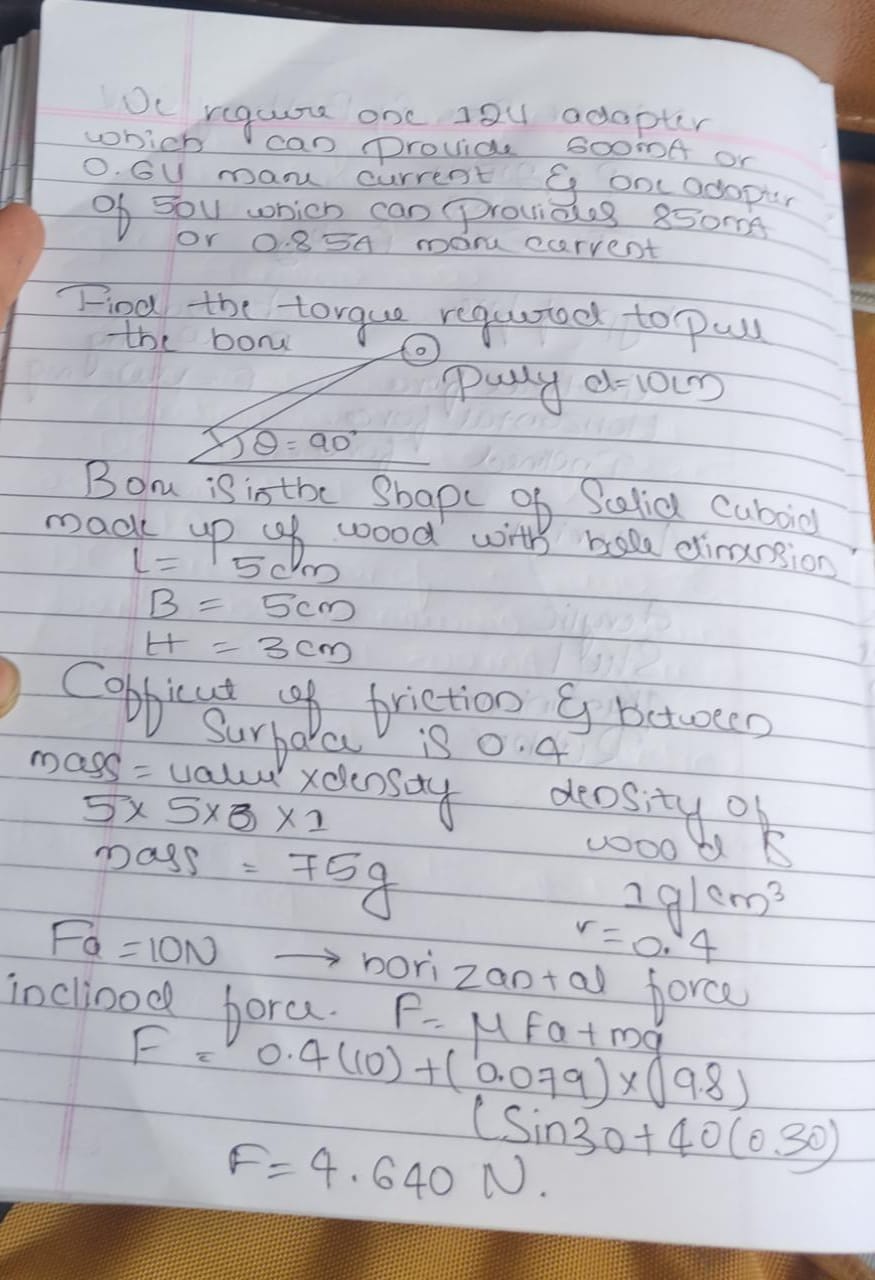 We require one 12V adapter
which can provide 600mA or
0.6V more current & one adapter
of 50V which can provides 850mA
or 0.85A more current
Find the torque required to pull
the box
pully d=10cm
θ=90°
Box is in the Shape of Solid cuboid
made up of wood with dimension
L= 5cm
B = 5cm
H = 3cm
Cofficut of friction & between
Surface is 0.4
mass = value x density
density of
5x 5x3 x1
wood is
mass = 75g
1g/cm³
r=0.4
Fa=10N → horizantal force
inclined force. F= μFa+mg
F = 0.4(10)+(0.079)x(9.8)
(Sin30+40(0.30)
F=4.640 N.